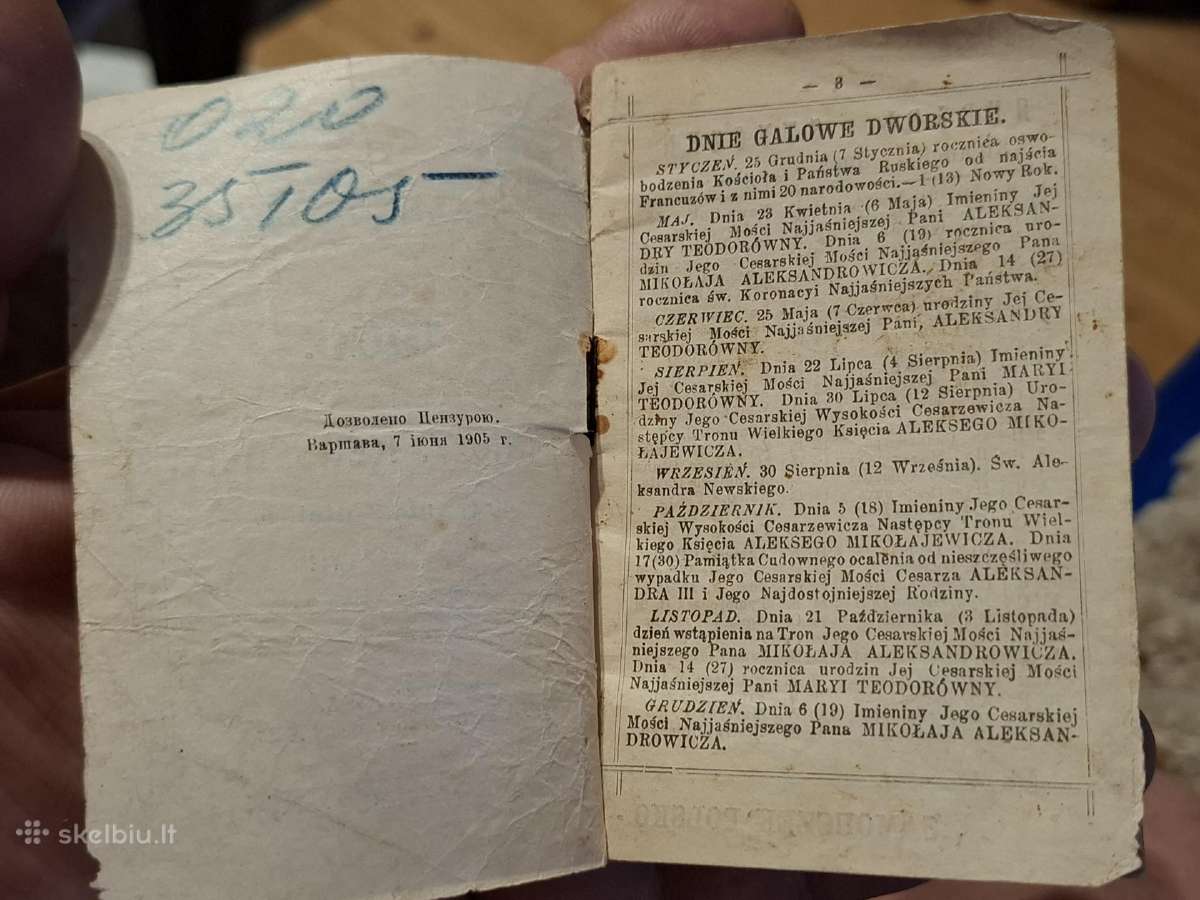 020
35 105 —
Дозволено Цензурою.
Варшава, 7 іюня 1905 г.
— 3 —
DNIE GALOWE DWORSKIE.
STYCZEŃ. 25 Grudnia (7 Stycznia) rocznica oswo-
bodzenia Kościoła i Państwa Ruskiego od najścia
Francuzów i z nimi 20 narodowości.—1 (13) Nowy Rok.
MAJ. Dnia 23 Kwietnia (6 Maja) Imieniny Jej
Cesarskiej Mości Najjaśniejszej Pani ALEKSAN-
DRY TEODORÓWNY. Dnia 6 (19) rocznica uro-
dzin Jego Cesarskiej Mości Najjaśniejszego Pana
MIKOŁAJA ALEKSANDROWICZA. Dnia 14 (27)
rocznica św. Koronacyi Najjaśniejszych Państwa.
CZERWIEC. 25 Maja (7 Czerwca) urodziny Jej Ce-
sarskiej Mości Najjaśniejszej Pani, ALEKSANDRY
TEODORÓWNY.
SIERPIEŃ. Dnia 22 Lipca (4 Sierpnia) Imieniny
Jej Cesarskiej Mości Najjaśniejszej Pani MARYI
TEODORÓWNY. Dnia 30 Lipca (12 Sierpnia) Uro-
dziny Jego Cesarskiej Wysokości Cesarzewicza Na-
stępcy Tronu Wielkiego Księcia ALEKSEGO MIKO-
ŁAJEWICZA.
WRZESIEŃ. 30 Sierpnia (12 Września). Św. Ale-
ksandra Newskiego.
PAŹDZIERNIK. Dnia 5 (18) Imieniny Jego Cesar-
skiej Wysokości Cesarzewicza Następcy Tronu Wiel-
kiego Księcia ALEKSEGO MIKOŁAJEWICZA. Dnia
17(30) Pamiątka Cudownego ocalenia od nieszczęśliwego
wypadku Jego Cesarskiej Mości Cesarza ALEKSAN-
DRA III i Jego Najdostojniejszej Rodziny.
LISTOPAD. Dnia 21 Października (3 Listopada)
dzień wstąpienia na Tron Jego Cesarskiej Mości Najjaś-
niejszego Pana MIKOŁAJA ALEKSANDROWICZA.
Dnia 14 (27) rocznica urodzin Jej Cesarskiej Mości
Najjaśniejszej Pani MARYI TEODORÓWNY.
GRUDZIEŃ. Dnia 6 (19) Imieniny Jego Cesarskiej
Mości Najjaśniejszego Pana MIKOŁAJA ALEKSAN-
DROWICZA.
skelbiu.lt